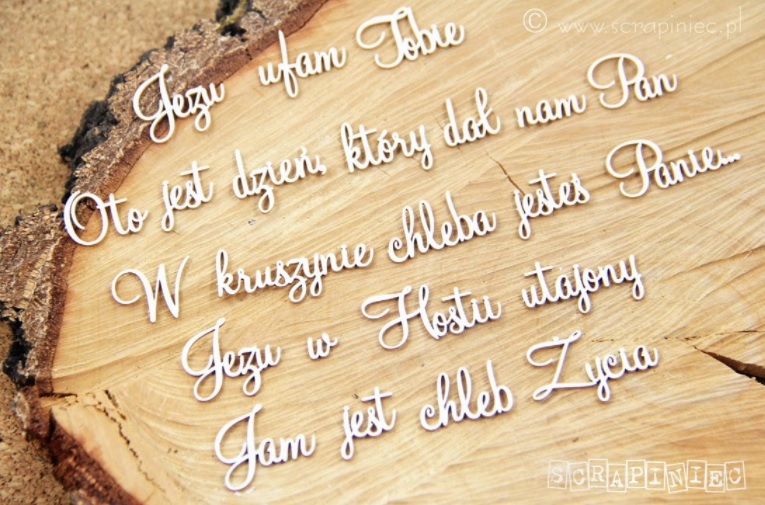 © www.scrapiniec.pl
Jezu ufam Tobie
Oto jest dzień, który dał nam Pan
W kruszynie chleba jesteś Panie...
Jezu w Hostii utajony
Jam jest chleb Życia
SCRAPINIEC